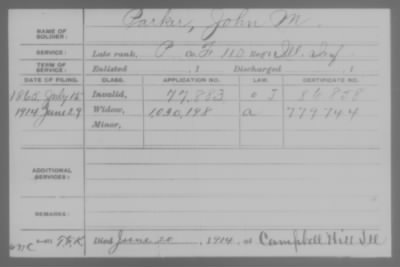 Parker, John M.
NAME OF SOLDIER:
SERVICE: Late rank, P Co. F 110 Reg't Ill. Inf
TERM OF SERVICE: Enlisted , 1 Discharged , 1
DATE OF FILING. CLASS. APPLICATION NO. LAW. CERTIFICATE NO.
1865, July 15 Invalid, 77,883 86858
1914 June 29 Widow, 1030,198 a 779744
Minor,
ADDITIONAL SERVICES:
REMARKS:
Died June 20, 1914, at Campbell Hill Ill